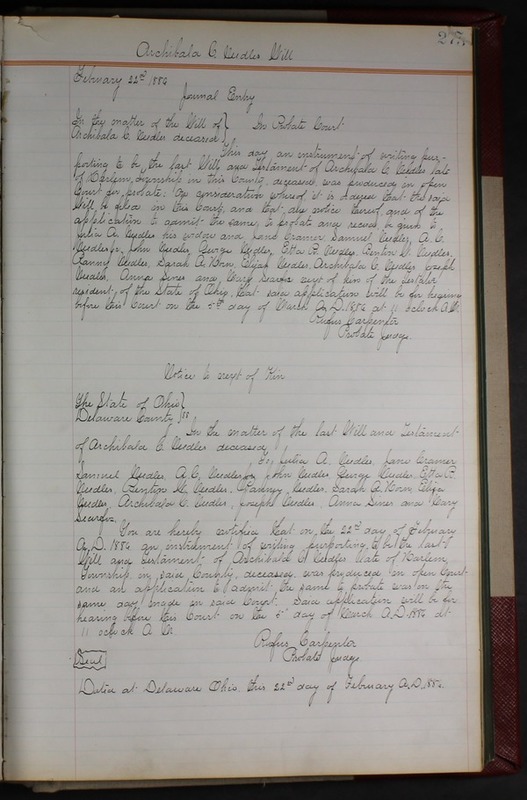 275
Archibald C. Needles Will
February 22nd 1884
Journal Entry
In the matter of the Will of } In Probate Court
Archibald C. Needles deceased }
This day an instrument of writing pur-
porting to be the last Will and Testament of Archibald C. Needles late
of Harlem Township in this County, deceased, was produced in open
Court for probate. On consideration whereof it is ordered that the said
Will be filed in this Court, and that due notice thereof, and of the
application to admit the same to probate and record be given to
Julia A. Needles his widow and Jane Cramer Samuel Needles, A. C.
Needles Jr, John Needles George Needles, Etta B. Needles, Fenton W. Needles,
Fanny Needles, Sarah A. Born, Elijah Needles, Archibald C. Needles, Joseph
Needles, Anna Diner and Mary Scarfoe next of kin of the Testator
resident of the State of Ohio, that said application will be for hearing
before this Court on the 5th day of March A.D. 1884 at 11 oclock A.M.
Rufus Carpenter
Probate Judge.
Notice to next of Kin
The State of Ohio }
Delaware County } ss
In the matter of the last Will and Testament
of Archibald C Needles deceased
To Julia A. Needles, Jane Cramer
Samuel Needles, A. C. Needles Jr John Needles George Needles, Etta B.
Needles, Fenton W. Needles, Fanny Needles, Sarah A. Born, Elijah
Needles, Archibald C. Needles, Joseph Needles, Anna Diner and Mary
Scarfoe.
You are hereby notified that on the 22nd day of February
A.D. 1884 an instrument of writing purporting to be the last
Will and Testament of Archibald C Needles late of Harlem
Township in said County, deceased, was produced in open Court
and an application to admit the same to probate was on the
same day made in said Court. Said application will be for
hearing before this Court on the 5th day of March A.D. 1884 at
11 oclock A. M.
Rufus Carpenter
Probate Judge
Seal
Dated at Delaware Ohio. this 22nd day of February A.D. 1884.